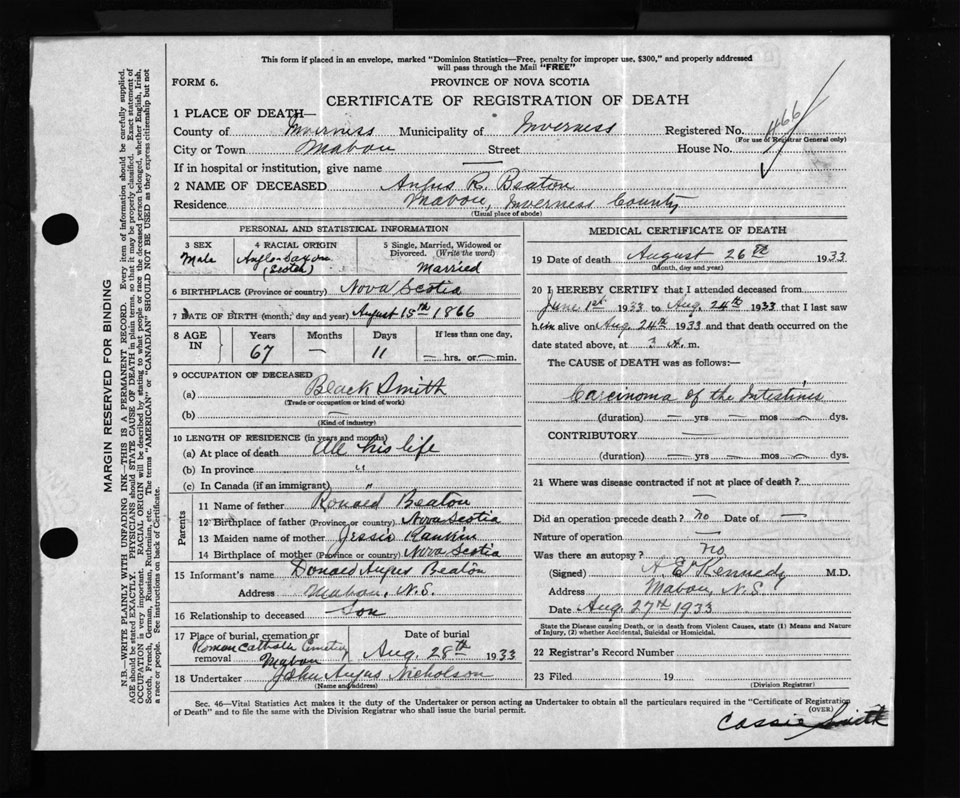 This form if placed in an envelope, marked "Dominion Statistics—Free, penalty for improper use, $300," and properly addressed
will pass through the Mail "FREE"
FORM 6.
PROVINCE OF NOVA SCOTIA
CERTIFICATE OF REGISTRATION OF DEATH
1 PLACE OF DEATH—
County of Inverness Municipality of Inverness Registered No. 466
(For use of Registrar General only)
City or Town Mabou Street House No.
If in hospital or institution, give name —
2 NAME OF DECEASED Angus R. Beaton
Residence Mabou, Inverness County
(Usual place of abode)
PERSONAL AND STATISTICAL INFORMATION
3 SEX
Male
4 RACIAL ORIGIN
Anglo-Saxon
(Scotch)
5 Single, Married, Widowed or
Divorced. (Write the word)
Married
6 BIRTHPLACE (Province or country) Nova Scotia
7 DATE OF BIRTH (month, day and year) August 15th 1866
8 AGE IN
Years Months Days If less than one day,
67 — 11 — hrs. or — min.
9 OCCUPATION OF DECEASED
(a) Black Smith
(Trade or occupation or kind of work)
(b) —
(Kind of industry)
10 LENGTH OF RESIDENCE (in years and months)
(a) At place of death All his life
(b) In province "
(c) In Canada (if an immigrant) "
Parents
11 Name of father Ronald Beaton
12 Birthplace of father (Province or country) Nova Scotia
13 Maiden name of mother Jessie Rankin
14 Birthplace of mother (Province or country) Nova Scotia
15 Informant's name Donald Angus Beaton
Address Mabou, N.S.
16 Relationship to deceased Son
17 Place of burial, cremation or removal
Roman Catholic Cemetery
Mabou
Date of burial
Aug. 28th 1933
18 Undertaker John Angus Nicholson
(Name and address)
MEDICAL CERTIFICATE OF DEATH
19 Date of death August 26th 1933
(Month, day and year)
20 I HEREBY CERTIFY that I attended deceased from
June 1st 1933 to Aug. 24th 1933 that I last saw
him alive on Aug. 24th 1933 and that death occurred on the
date stated above, at 3 A. m.
The CAUSE of DEATH was as follows:—
Carcinoma of the Intestines
(duration) — yrs — mos — dys.
CONTRIBUTORY —
(duration) — yrs — mos — dys.
21 Where was disease contracted if not at place of death?
—
Did an operation precede death? no Date of —
Nature of operation —
Was there an autopsy? no
(Signed) A E Kennedy M.D.
Address Mabou, N.S.
Date Aug. 27th 1933
State the Disease causing Death, or in death from Violent Causes, state (1) Means and Nature
of Injury, (2) whether Accidental, Suicidal or Homicidal.
22 Registrar's Record Number
23 Filed 19
(Division Registrar)
Sec. 46—Vital Statistics Act makes it the duty of the Undertaker or person acting as Undertaker to obtain all the particulars required in the "Certificate of Registration
of Death" and to file the same with the Division Registrar who shall issue the burial permit.
(OVER)
Cassie Smith
MARGIN RESERVED FOR BINDING
N.B.—WRITE PLAINLY WITH UNFADING INK—THIS IS A PERMANENT RECORD. Every item of information should be carefully supplied.
AGE should be stated EXACTLY. PHYSICIANS should STATE CAUSE OF DEATH in plain terms, so that it may be properly classified. Exact statement of
OCCUPATION is very important. RACIAL ORIGIN will be described by stating to what people or race the deceased person belonged, whether English, Irish,
Scotch, French, German, Russian, Ruthenian, etc. The terms "AMERICAN" or "CANADIAN" SHOULD NOT BE USED as they express citizenship but not
a race or people. See instructions on back of Certificate.